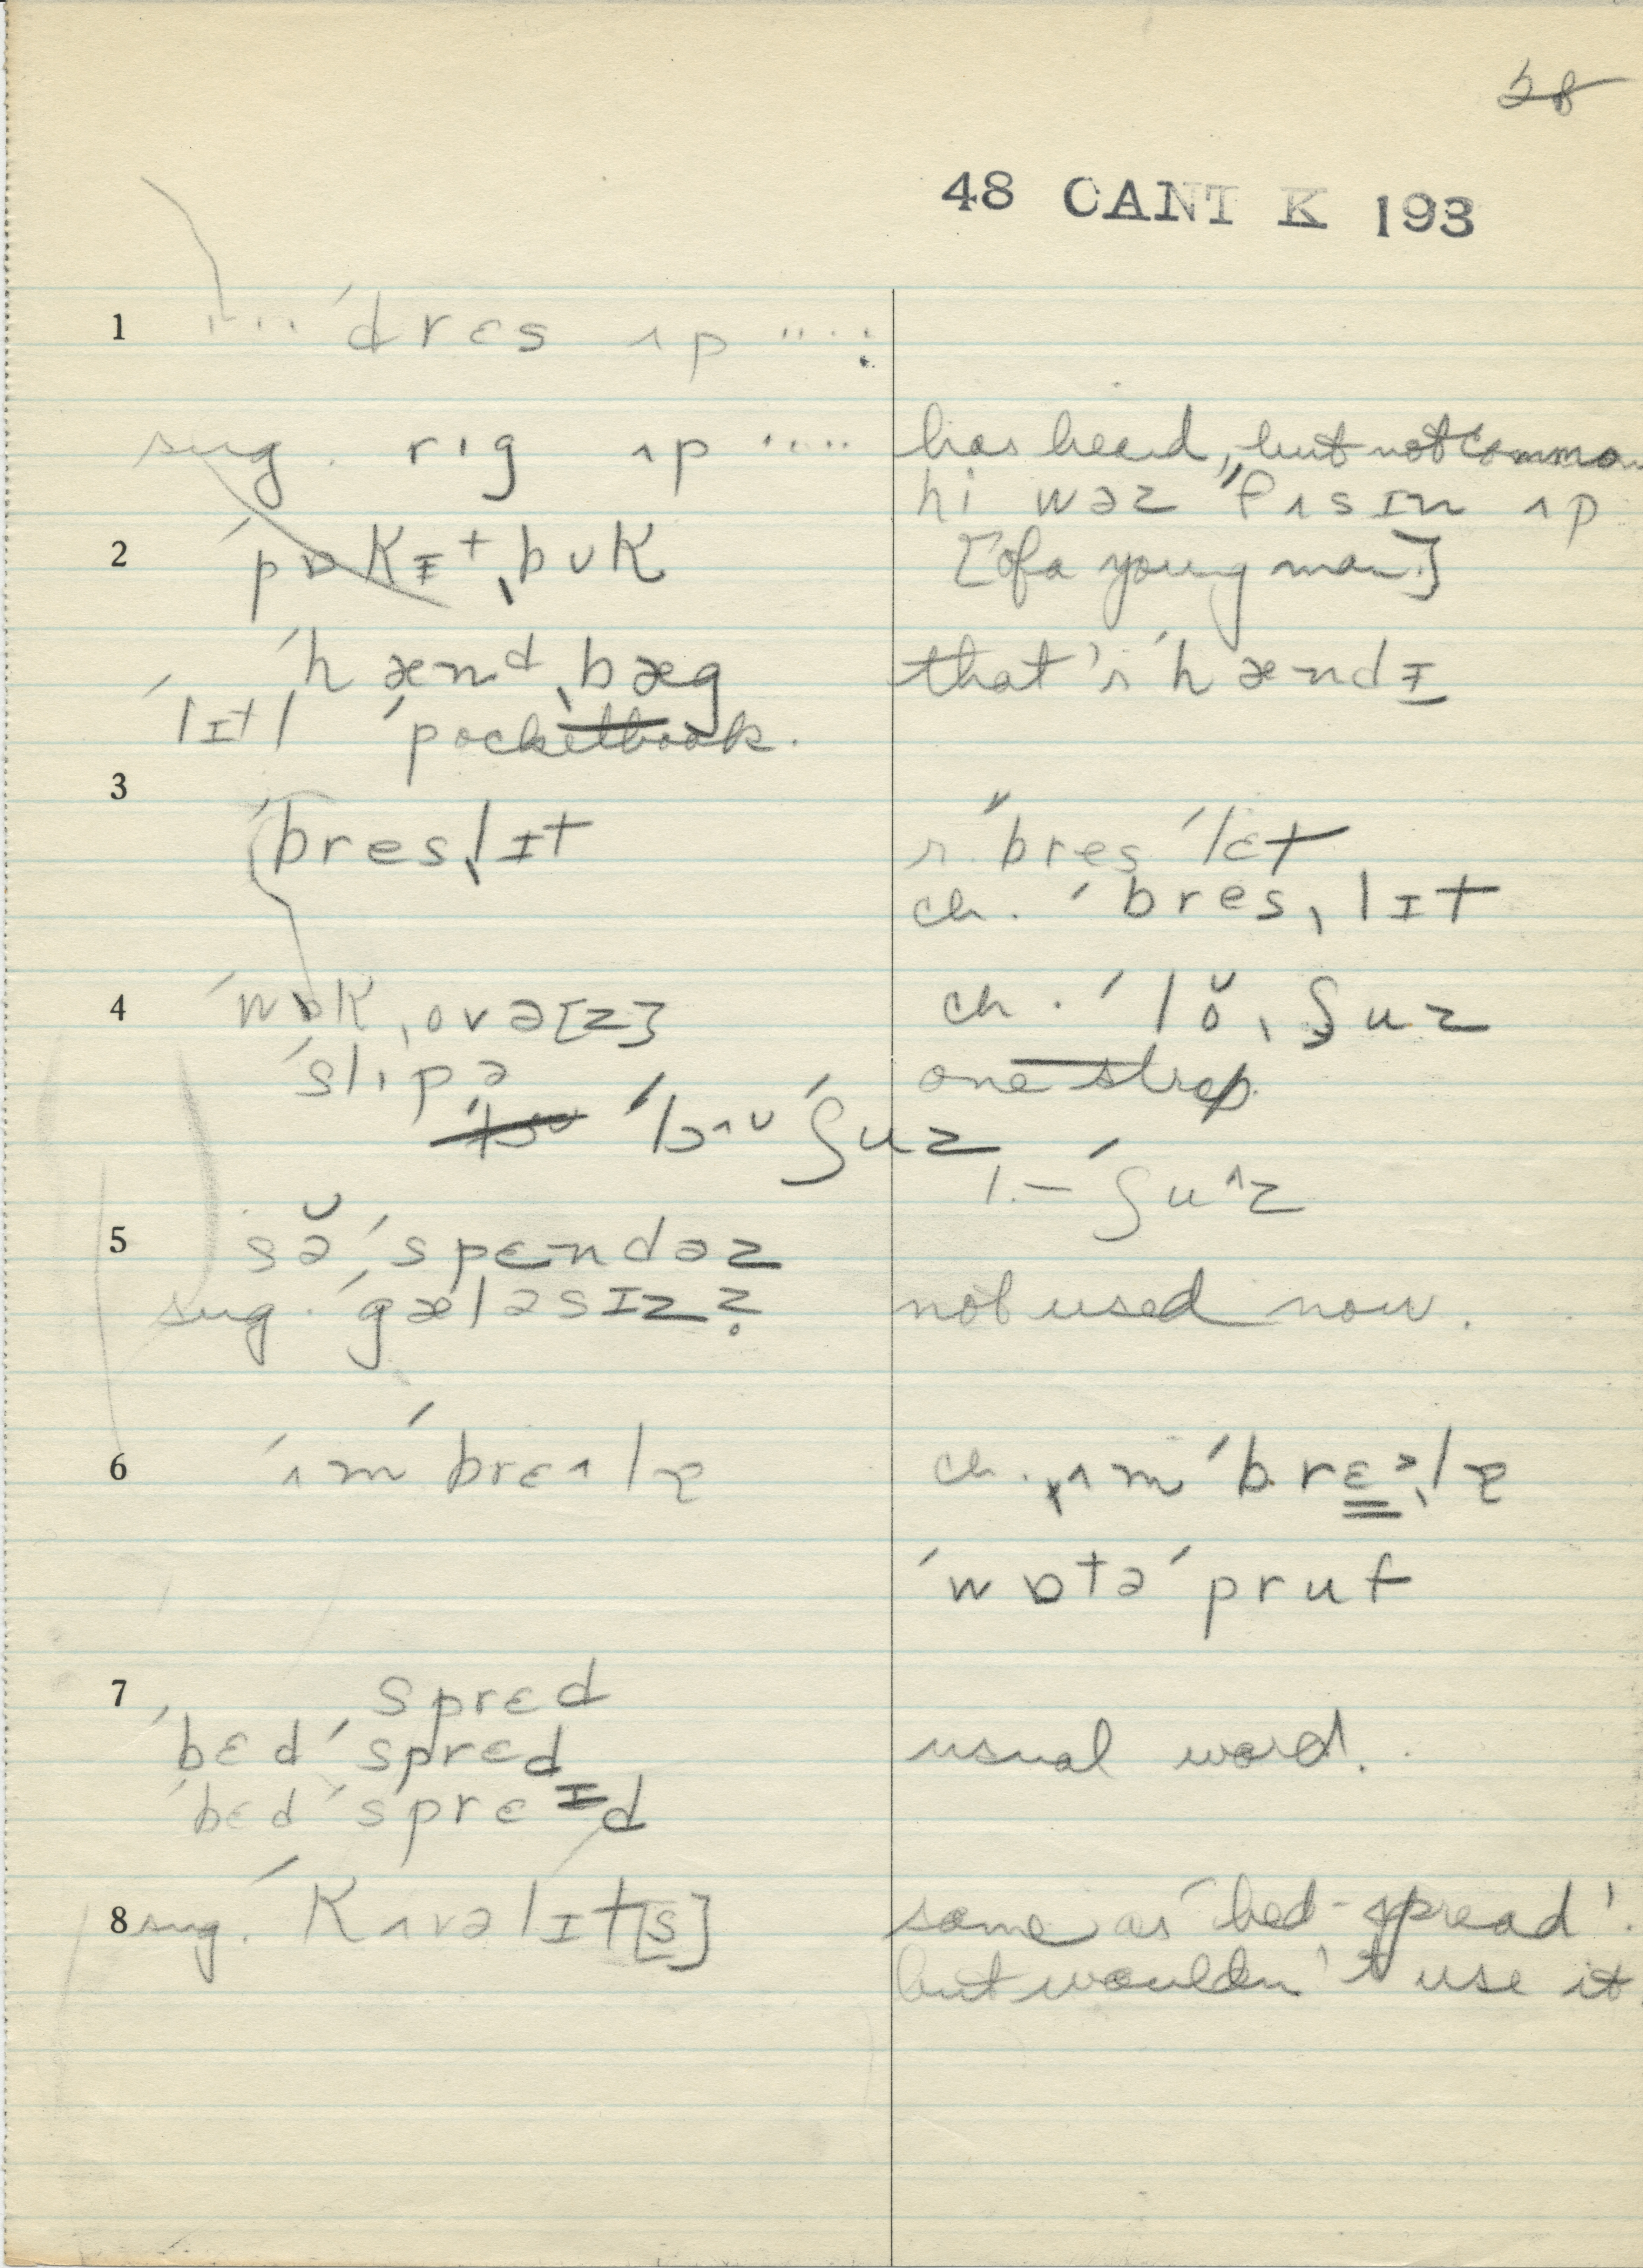 28
48 CANT K 193
1 .... ˈdrɛs ʌp ....:
sug. rɪg ʌp .... has heard, but not common
hi wəz "fʌsɪn ʌp
2 ˈpɒkɪtˌbʊk [of a young man]
ˈhænᵈˌbæg that's ˈhændɪ
ˈlɪtl ˈpocketbook.
3
ˈbresˌlɪt r. "bres ˈlɛt
ch. ˈbresˌlɪt
4 ˈwɒkˌovə[z] ch. ˈlŏˌʃuz
ˈslɪpə one strap
"lɔʌʊ ˈʃuz
l.– ˈʃuʌz
5 sə̆ˈspɛndəz
sug. ˈgæləsɪz? not used now.
6 ˈʌmˈbrɛʌlə ch. ˌʌmˈbrɛᵊˌlə
ˈwɒtəˈpruf
7 sprɛd
ˈbɛdˈsprɛd usual word.
ˈbɛdˈsprɛɪd
8 sug. ˈkʌvəlɪt[s] same as 'bed-spread'.
but wouldn't use it.